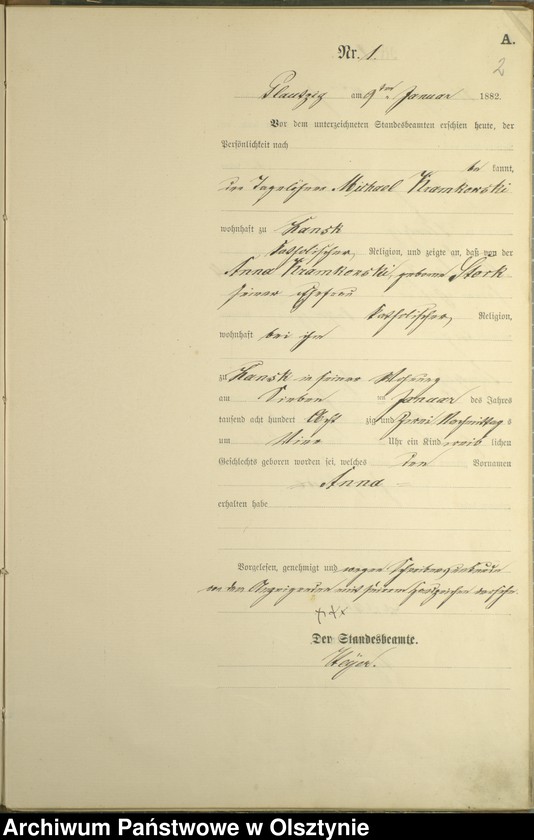 A.
2
Nr. 1.
Plautzig am 9ten Januar 1882.
Vor dem unterzeichneten Standesbeamten erschien heute, der
Persönlichkeit nach
be kannt,
der Tagelöhner Michael Kramkowski
wohnhaft zu Lansk
katholischer Religion, und zeigte an, daß von der
Anna Kramkowski geborne Stork
seiner Ehefrau
katholischer Religion,
wohnhaft bei ihm
zu Lansk in seiner Wohnung
am Sieben ten Januar des Jahres
tausend acht hundert Acht zig und Zwei Nachmittag s
um Vier Uhr ein Kind weib lichen
Geschlechts geboren worden sei, welches den Vornamen
Anna
erhalten habe
Vorgelesen, genehmigt und wegen Schreibensunkunde
von dem Anzeigenden mit seinem Handzeichen versehn.
xxx
Der Standesbeamte.
Archiwum Państwowe w Olsztynie